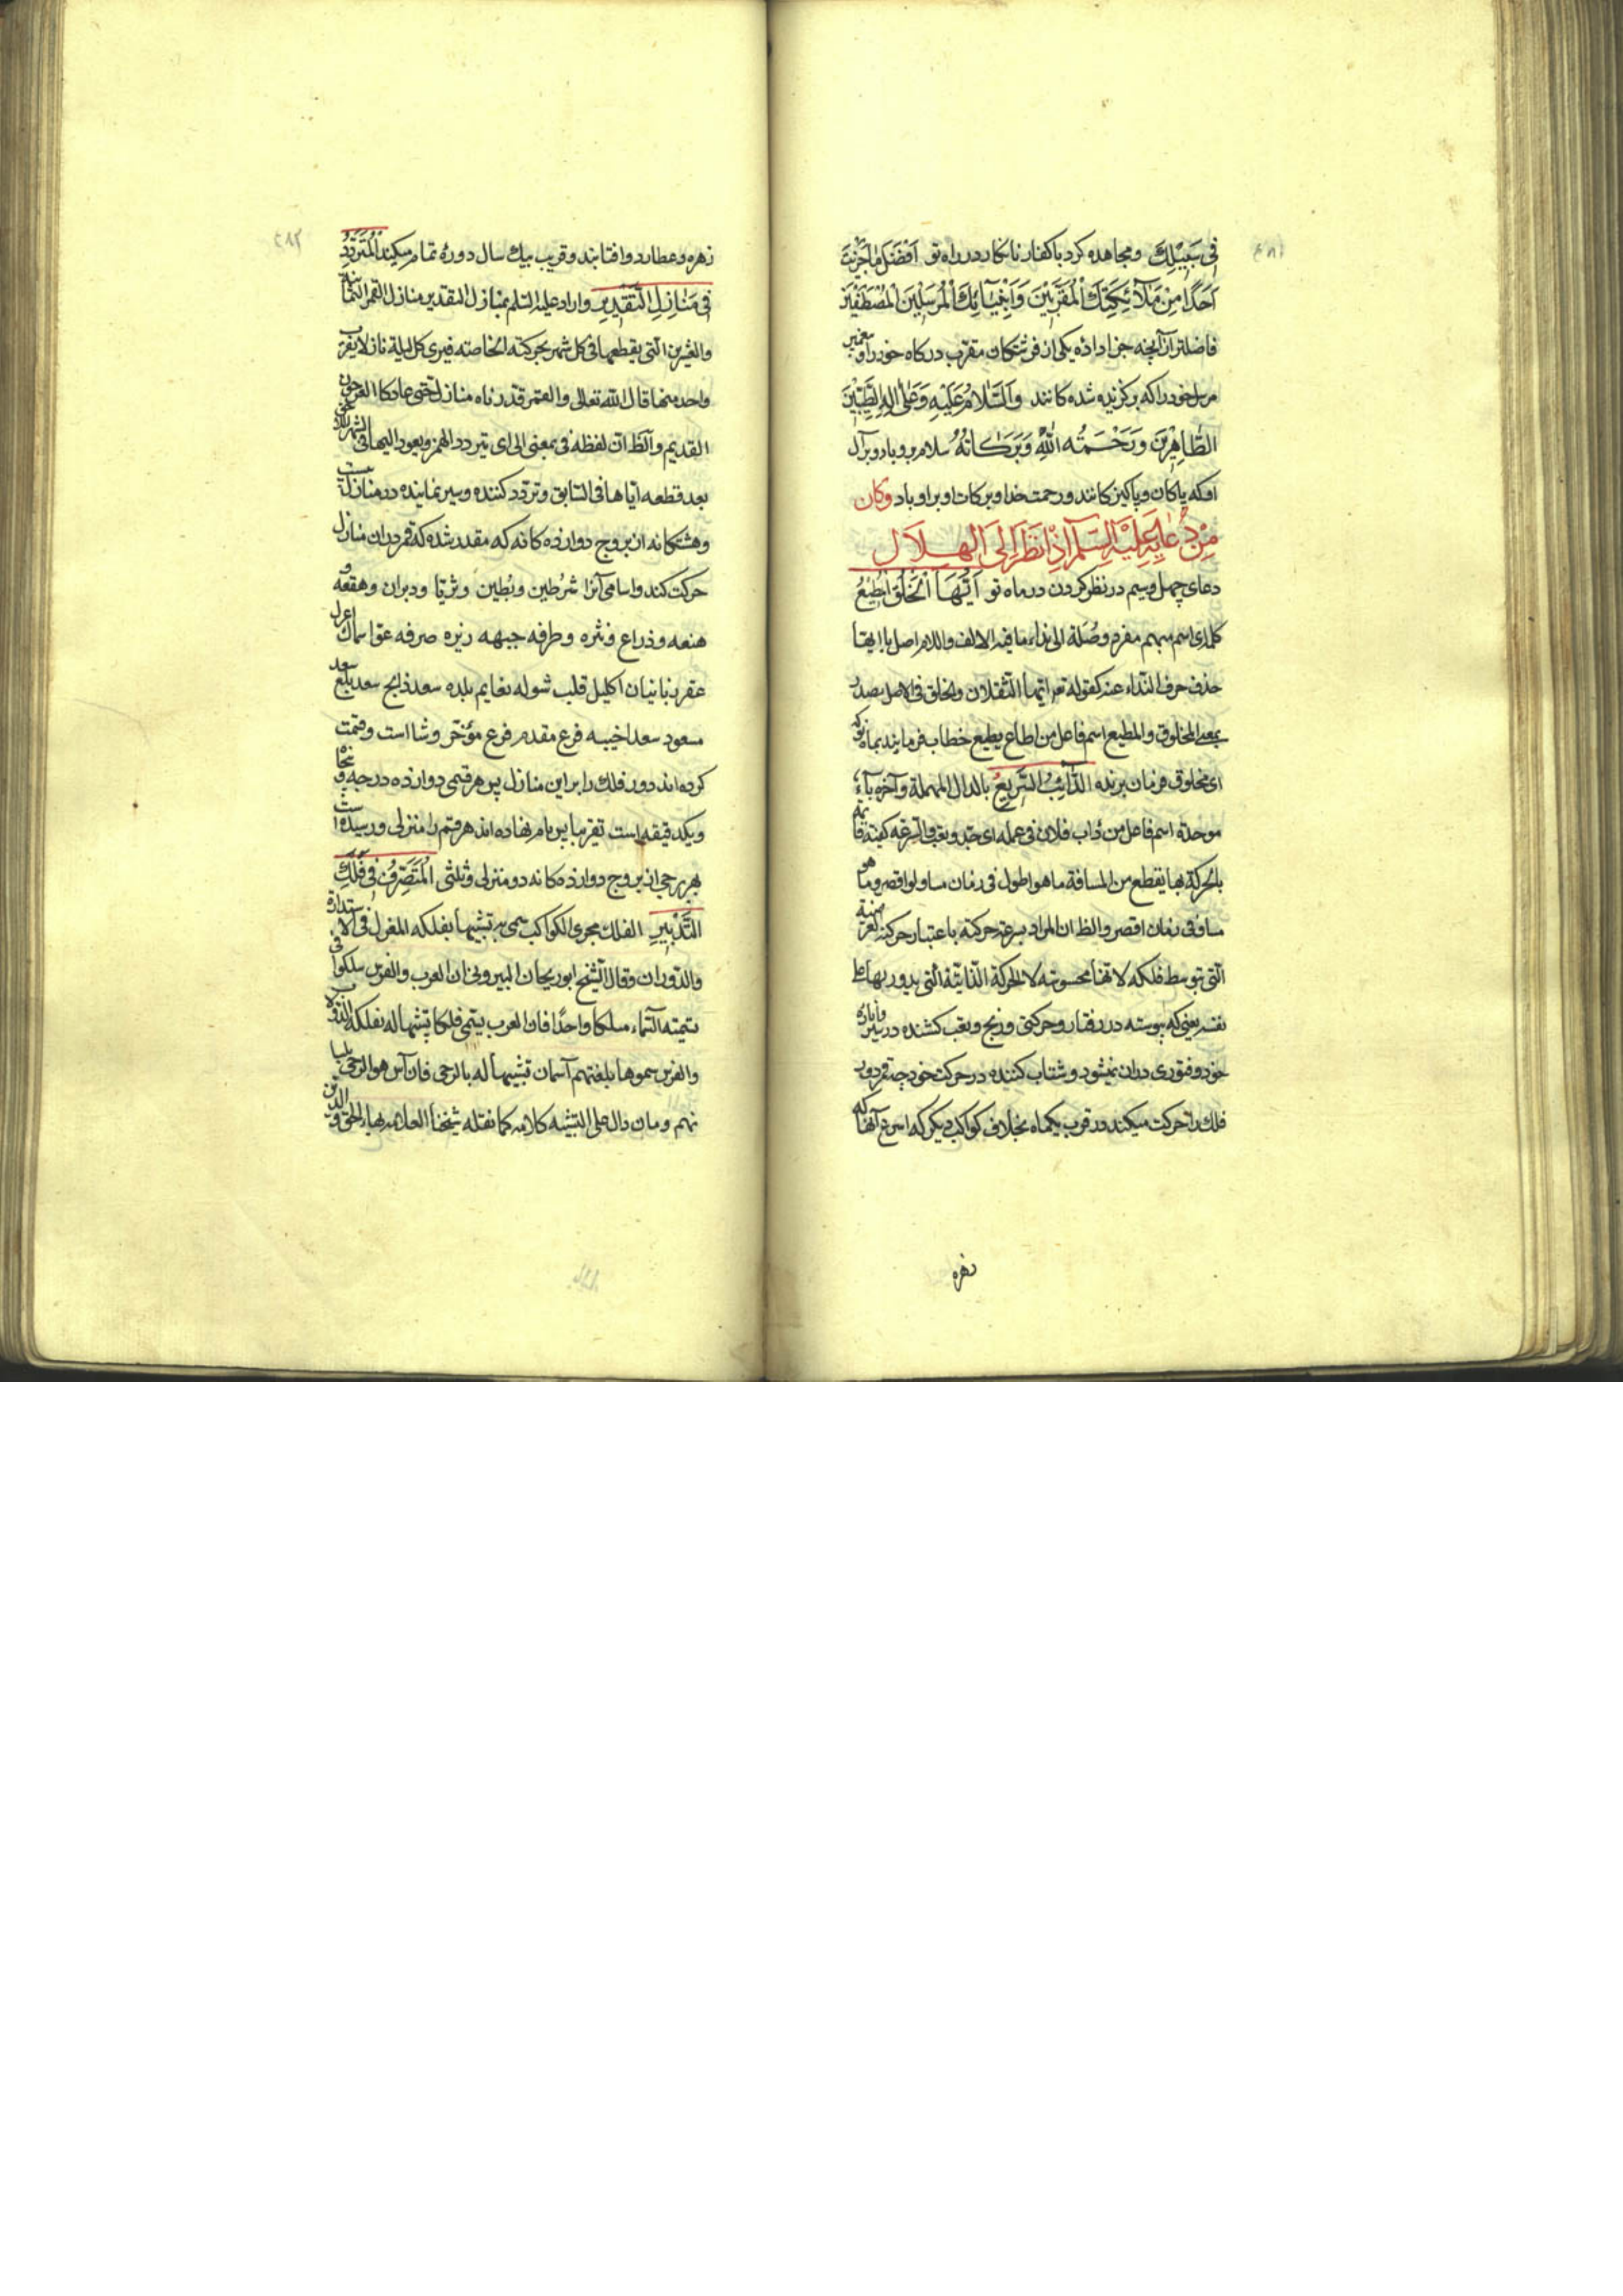 فِی سَبِیْلِكَ ومجاهده کرد با کفار نابکار در راه تو اَفْضَلَ مَا جَزَیْتَ
اَحَدًا مِنْ مَلاَئِكَتِكَ الْمُقَرَّبِیْنَ وَاَنْبِیَآئِكَ الْمُرْسَلِیْنَ الْمُصْطَفَیْنَ
فاضلتر از آنچه جزا داده یکی از فرشتکان مقرب درکاه خود را و پیغمبر
مرسل خود را که برکزیده شده کانند وَالسَّلَامُ عَلَیْهِ وَعَلٰی اٰلِهِ الطَّیِّبِیْنَ
الطَّاهِرِیْنَ وَرَحْمَتُه اللهِ وَبَرَكَاتُهُ سلام برو باد و برآل
او که پاکان و پاکیزکانند ورحمت خدا وبرکات او بر او باد وکان
مِنْ دُعَائِهِ عَلَیْهِ السَّلَمُ اِذَا نَظَرَ اِلَی الْهِلَالِ
دعای چهل وسیم در نظر کردن در ماه نو اَیُّهَا الْخَلْقُ الْمُطِیْعُ
کلمة ای اسم مبهم مفرد وصُلة الی نداء ما فیه الالف واللام اصل یا ایها
حذف حرف النداء عنه کقوله تعالی ایها الثقلان والخلق فی الاصل مصدر
بمعنی المخلوق والمطیع اسم فاعل من اطاع یطیع خطاب می فرمایند بماه نو که
ای مخلوق فرمان برنده الدَّائِبُ السَّرِیْعُ بالدال المهملة وآخره باء
موحدة اسم فاعل من دَاب فلان فی عمله ای جد وتعب والسرعة کیفیة قائمه
بالحرکة بها یقطع من المسافة ما هو اطول فی زمان مساو او اقصر وما هو
مساو فی زمان اقصر والظ ان المراد بسرعة حرکته باعتبار حرکته العرضیة
التی بتوسط فلکه لانها محسوسه لا الحرکة الذاتیة التی یدور بها علی
نفسه یعنی که پیوسته در رفتار وحرکتی ورنج وتعب کشنده در سیر
خود وفتوری دران نمیشود وشتاب کننده در حرکت خود چه قمر دور
فلك را حرکت میکند در قرب یکماه بخلاف کواکب دیکر که اسرع آنها که
زهره
زهره وعطارد وافتابند وقریب بیك سال دوره تمام میکنند الْمُتَرَدِّدُ
فِی مَنَازِلِ التَّقْدِیْرِ واراد علیه السلم بمنازل التقدیر منازل القمر الثمانیة
والعشرین التی یقطعها فی کل شهر بحرکته الخاصته فیری کل لیلة نازلا بقرب
واحد منها قال الله تعالی والقمر قدرناه منازل حتی عاد کالعرجون
القدیم والظ ان لفظه فی بمعنی الی ای یتردد القمر ویعود الیها فی الشهر اللاحق
بعد قطعه ایاها فی السابق وتردد کننده وسیر نماینده در منازل بیست
وهشتکانه از بروج دوازده کانه که مقدر شده که قمر دران منازل
حرکت کند واسامی آنرا شرُطین وبُطین وثریّا ودبران وهقعه و
هنعه وذراع ونثره وطرفه جبهه زبره صرفه عوّا سماك اعزل
غفر زبانیان اکلیل قلب شوله نعایم بلده سعد ذابح سعد بلع سعد
سعود سعد اخبیه فرع مقدم فرع مؤخر ورشا است وقسمت
کرده اند دور فلك را براین منازل پس هر قسمی دوازده درجه و پنجاه
ویکدقیقه است تقریبا پس نام نهاده اند هر قسم را منزلی ورسیده است
بهر برجی از بروج دوازده کانه دو منزلی وثلثی الْمُتَصَرِّفُ فِی فَلَكِ
التَّدْبِیْرِ الفلك مجری الکواکب سمی به تشبیها بفلکه المغزل فی الاستدارة
والدوران وقال الشیخ ابو ریحان البیرونی ان العرب والفرس سلکوا فی
تسمیته السماء مسلکا واحدًا فان العرب یسمی فلکا تشبیها له بفلکه الدولاب
والفرس سموها بلغتهم آسمان تشبیها له بالرحی فان آس هو الرحی بلسا
نهم ومان دال علی التشبیه کلامه کما نقله شیخنا العلامه بهاء الحق والدین